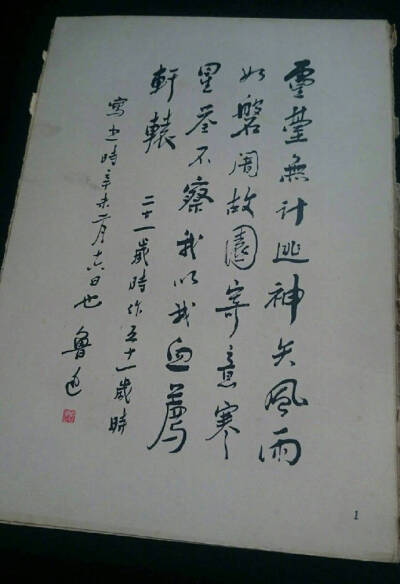 靈臺無計逃神矢風雨
如磐闇故園寄意寒
星荃不察我以我血薦
軒轅 二十一歲時作五十一歲時
寫之時辛未二月十六日也 魯迅
1